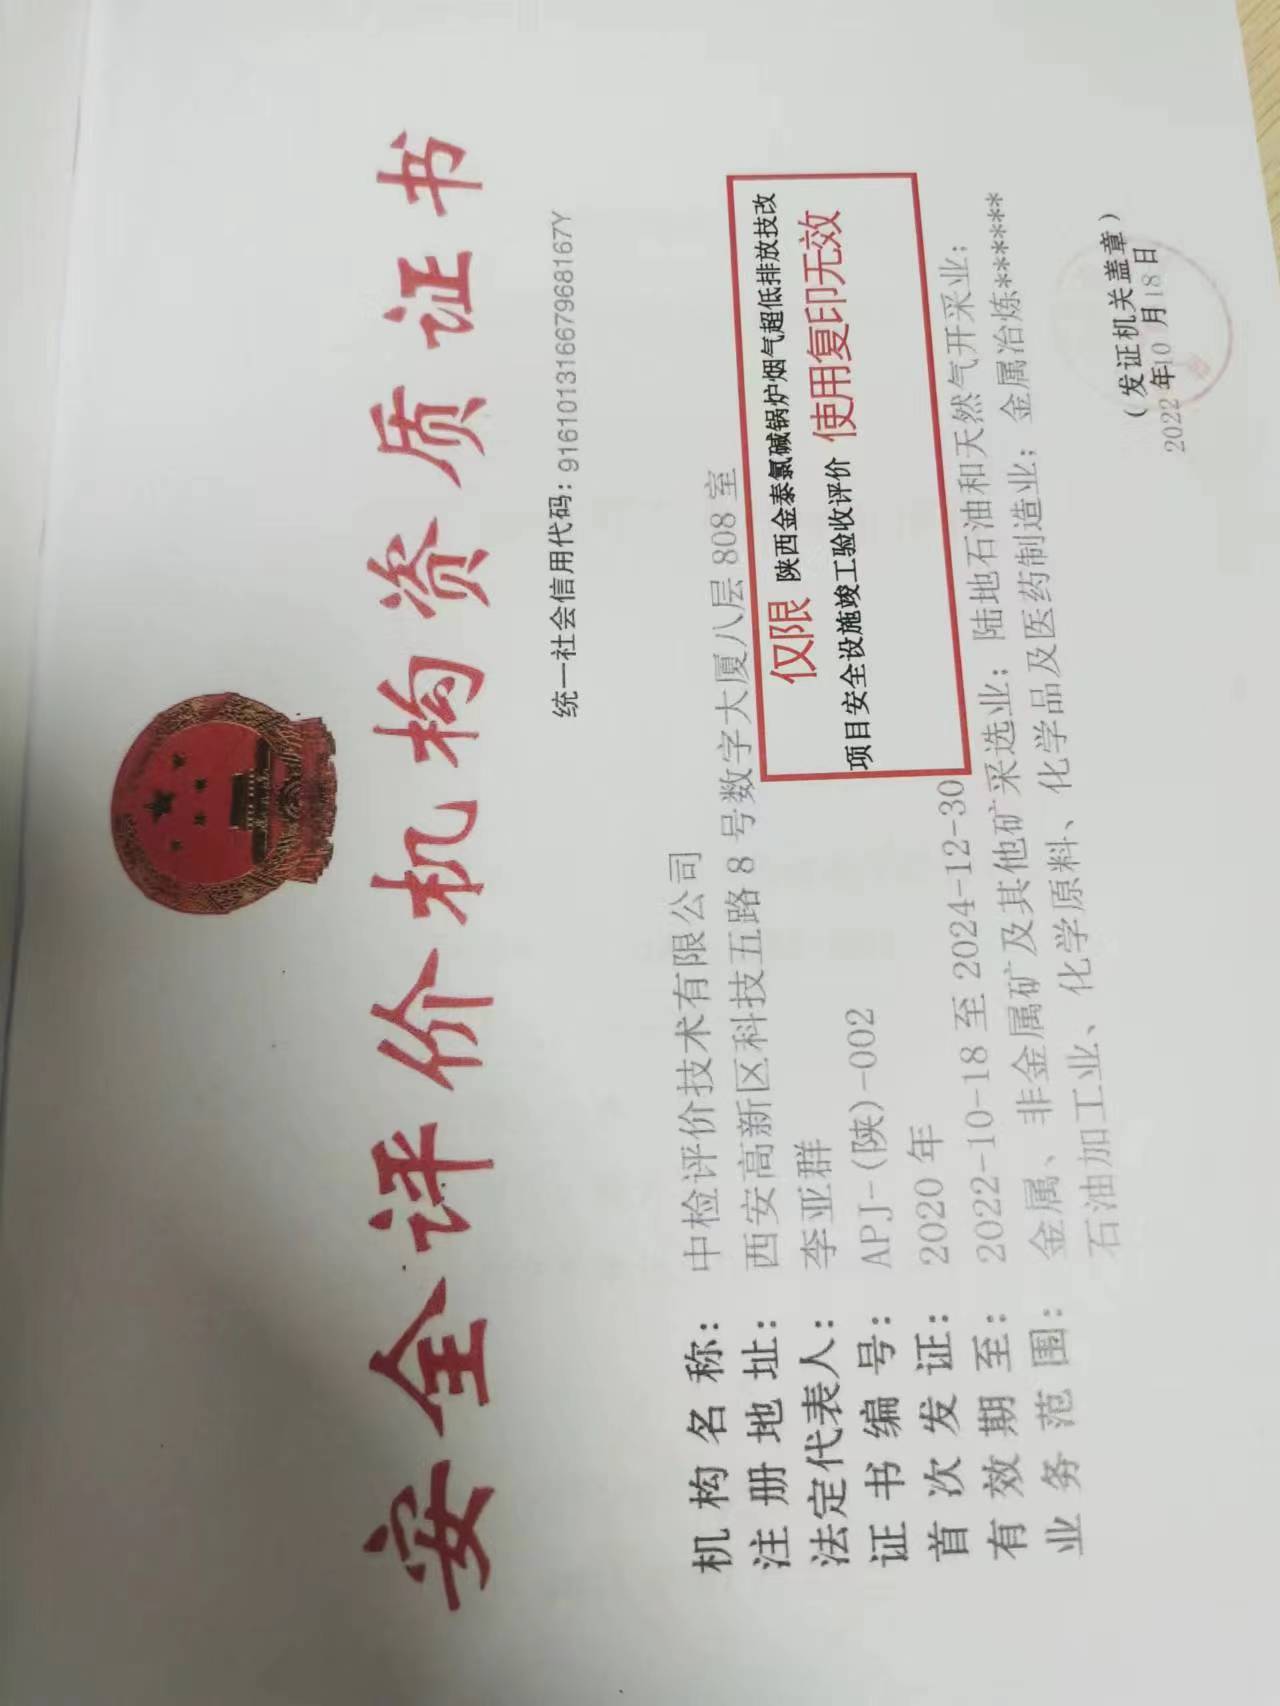 安全评价机构资质证书
统一社会信用代码：91610131667968167Y
机构名称：中检评价技术有限公司
注册地址：西安高新区科技五路8号数字大厦八层808室
仅限 陕西金泰氯碱锅炉烟气超低排放技改
项目安全设施竣工验收评价 使用复印无效
法定代表人：李亚群
证书编号：APJ-(陕)-002
首次发证：2020年
有效期至：2022-10-18至2024-12-30
业务范围：金属、非金属矿及其他矿采选业；陆地石油和天然气开采业；
石油加工业、化学原料、化学品及医药制造业；金属冶炼*******
（发证机关盖章）
2022年10月18日